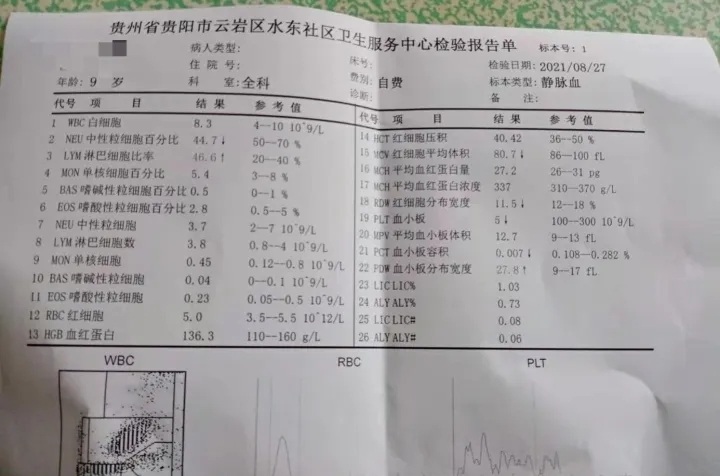 贵州省贵阳市云岩区水东社区卫生服务中心检验报告单
标本号: 1
病人类型:
住 院 号:
床号:
检验日期: 2021/08/27
年龄: 9 岁
科 室: 全科
费别: 自费
标本类型: 静脉血
诊断:
备 注:
代号 项 目 结 果 参 考 值
1 WBC 白细胞 8.3 4--10 10^9/L
2 NEU 中性粒细胞百分比 44.7↓ 50--70 %
3 LYM 淋巴细胞比率 46.6↑ 20--40 %
4 MON 单核细胞百分比 5.4 3--8 %
5 BAS 嗜碱性粒细胞百分比 0.5 0--1 %
6 EOS 嗜酸性粒细胞百分比 2.8 0.5--5 %
7 NEU 中性粒细胞 3.7 2--7 10^9/L
8 LYM 淋巴细胞数 3.8 0.8--4 10^9/L
9 MON 单核细胞 0.45 0.12--0.8 10^9/L
10 BAS 嗜碱性粒细胞 0.04 0--0.1 10^9/L
11 EOS 嗜酸性粒细胞 0.23 0.05--0.5 10^9/L
12 RBC 红细胞 5.0 3.5--5.5 10^12/L
13 HGB 血红蛋白 136.3 110--160 g/L
代号 项 目 结 果 参 考 值
14 HCT 红细胞压积 40.42 36--50 %
15 MCV 红细胞平均体积 80.7↓ 86--100 fL
16 MCH 平均血红蛋白量 27.2 26--31 pg
17 MCH 平均血红蛋白浓度 337 310--370 g/L
18 RDW 红细胞分布宽度 11.5↓ 12--18 %
19 PLT 血小板 5↓ 100--300 10^9/L
20 MPV 平均血小板体积 12.7 9--13 fL
21 PCT 血小板容积 0.007↓ 0.108--0.282 %
22 PDW 血小板分布宽度 27.8↑ 9--17 fL
23 LIC LIC% 1.03
24 ALY ALY% 0.73
25 LIC LIC# 0.08
26 ALY ALY# 0.06
WBC
RBC
PLT